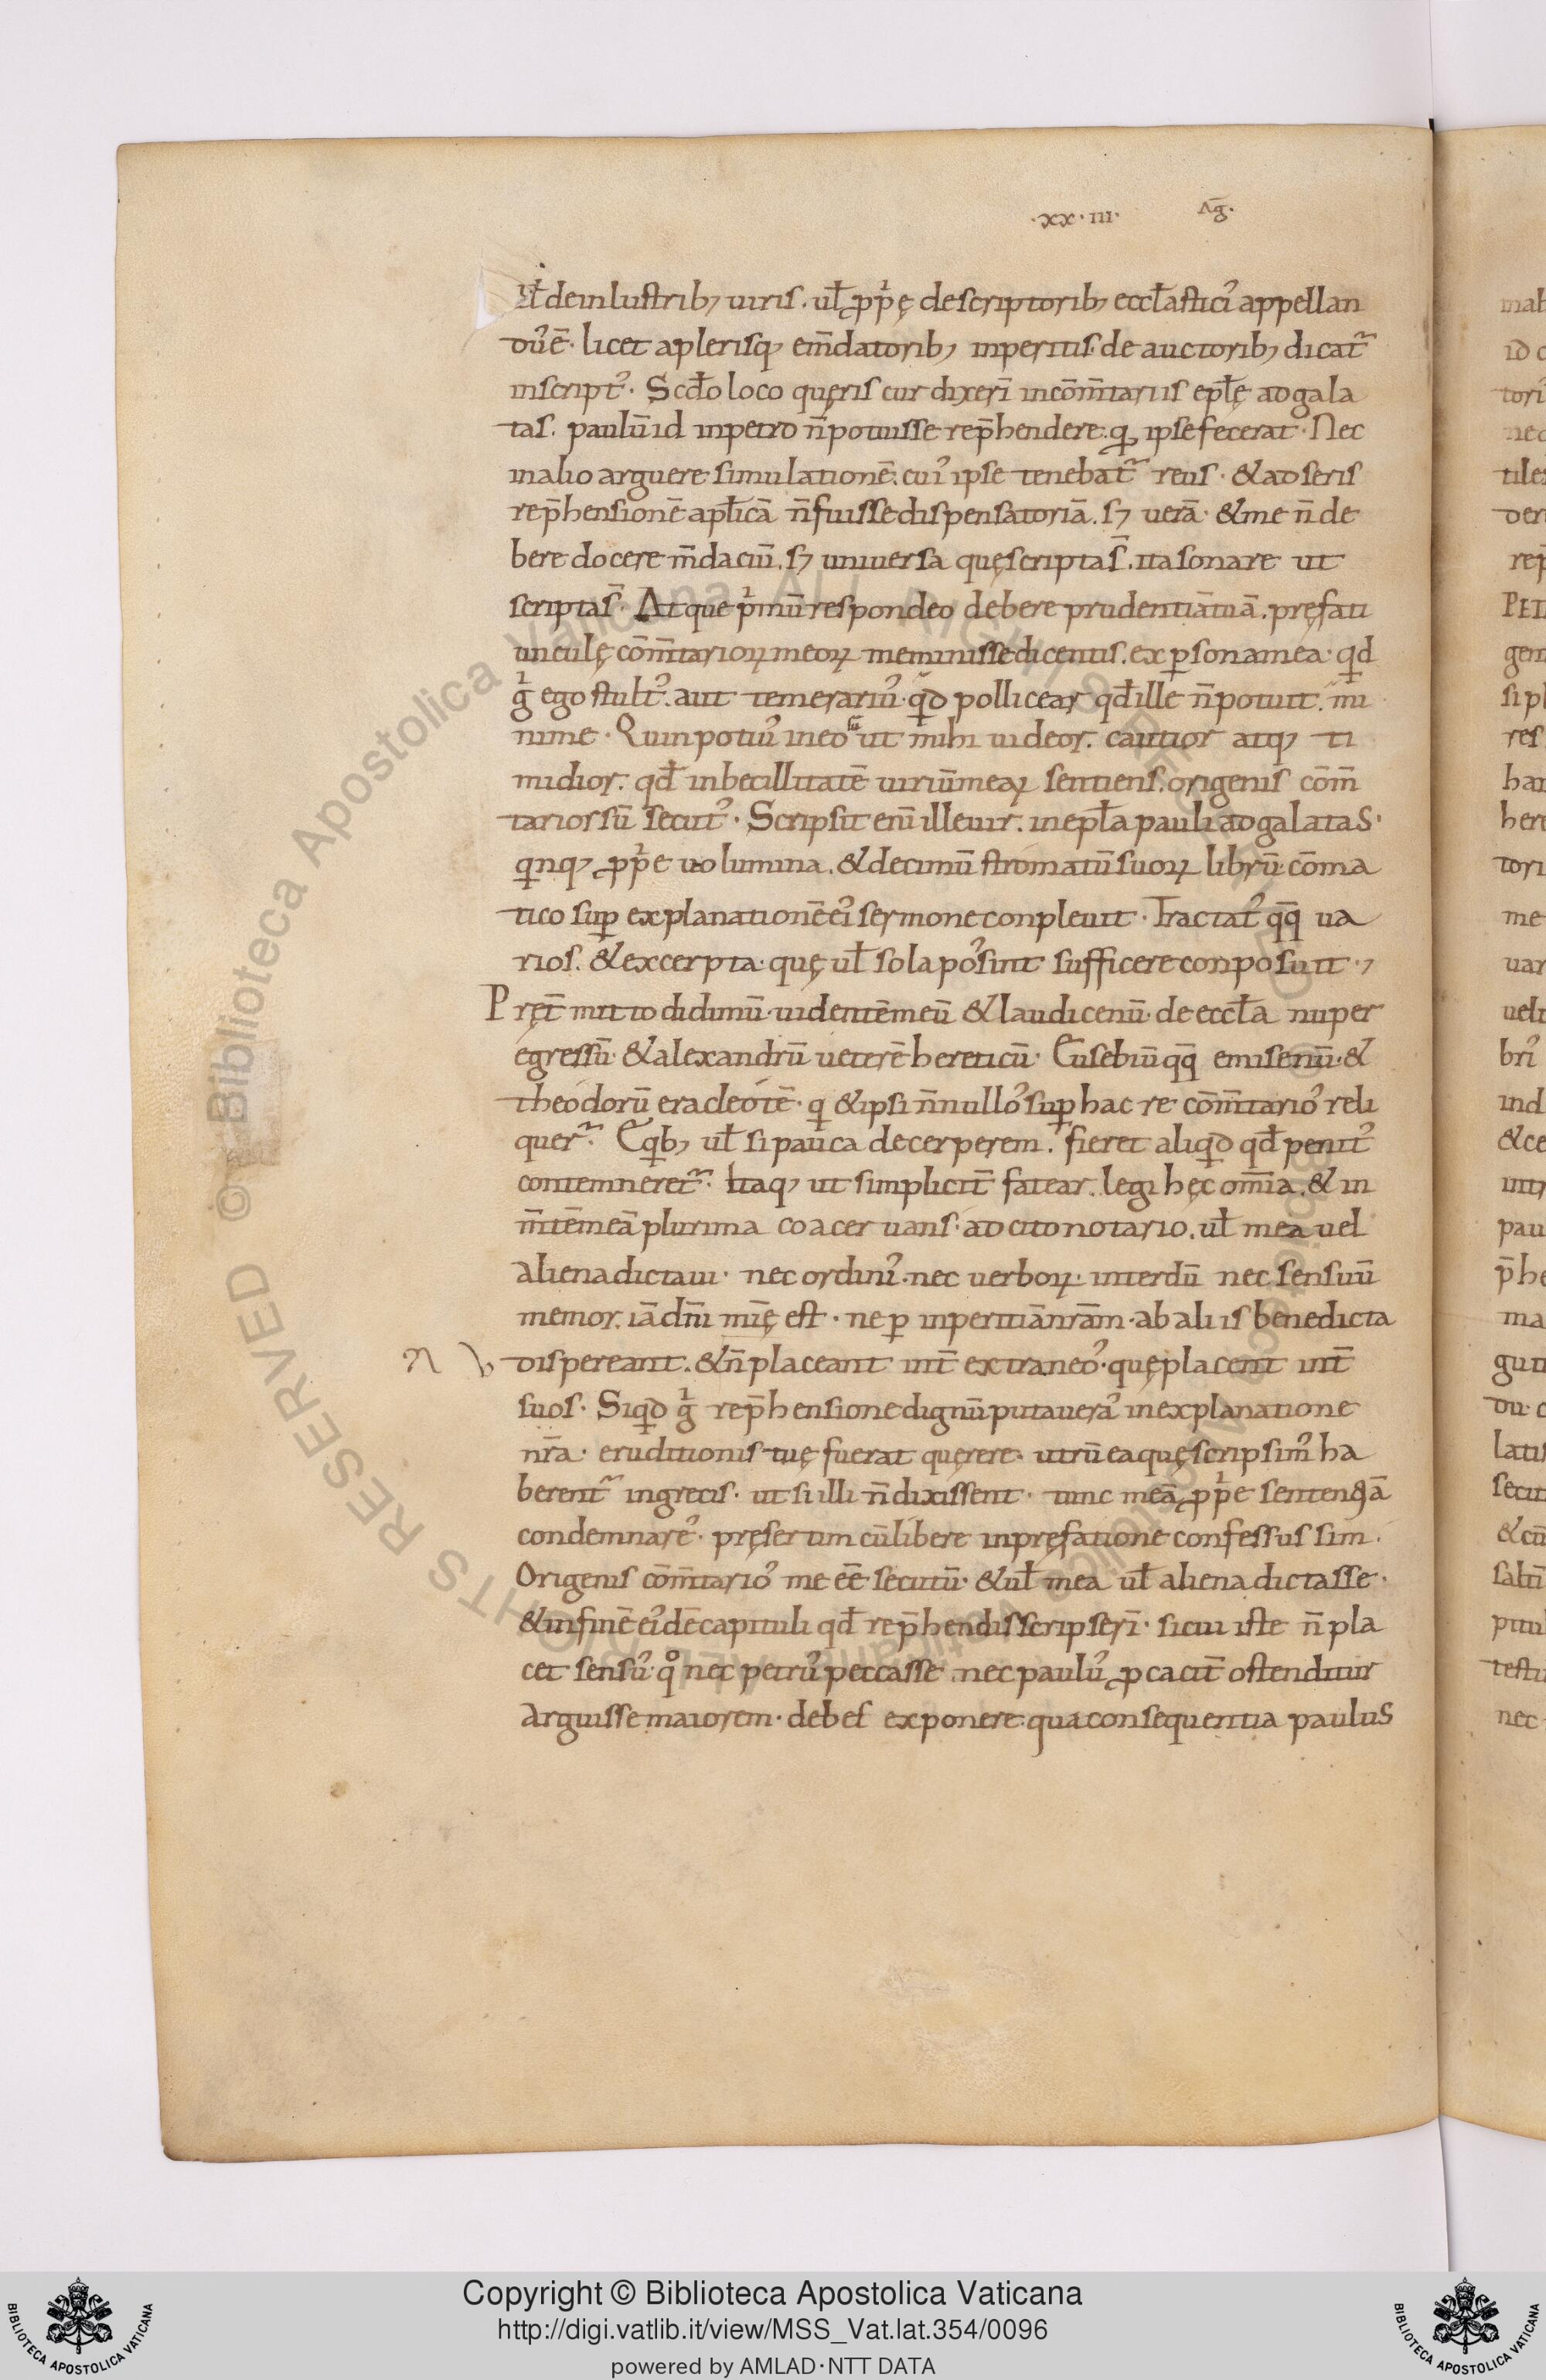 ·xx·iii· AḠ·
ul̄ deinlustrib; uiris. ul̄ ꝓpͥę descriptorib; eccl̄asticꝰ appellan
dꝰ ē· licet aplerisq; em̄datorib; inperitis· de auctorib; dicat᷑
inscriptꝰ· Scd̄o loco quęris cur dixerī incōm̄tariis epl̄ę adgala
tas. paulū id inpetro n̄ potuisse rep̄hendere. qđ ipse fecerat· Nec
inalio arguere simulationē. cuiꝰ ipse tenebat᷑ reus· & adseris
rep̄hensionē apl̄icā n̄ fuisse dispensatoriā. sꝫ uerā· & me n̄ de
bere docere m̄daciū. sꝫ uniuersa quę scripta s̄. ita sonare ut
scripta s̄· Atque pͥmū respondeo debere prudentiā tuā. pręfati
unculę cōm̄tarioꝝ meoꝝ meminisse dicentis. ex ꝑsona mea· qd
gͥ ego stultꝰ. aut temerariꝰ· qͥd pollicear qd̄ ille n̄ potuit. mi
nime· Quin potiꝰ in eo ut mihi uideor. cautior atq; ti
midior. qd̄ inbecillitatē uiriū meaꝝ sentiens. origenis cōm̄
tarios sū secutꝰ· Scripsit enī ille uir. in epl̄a pauli ad galatas·
qͥnq; ꝓpͥe uolumina. & decimū stromatū suoꝝ librū cōma
tico suꝑ explanationē eiꝰ sermone conpleuit· Tractatꝰ qq̄ ua
rios. & excerpta· quę ul̄ sola posͥint sufficere conposuit·,
Pręt̄ mitto didimū· uidentē meū & laudicenū· de eccl̄a nuper
egressū· & alexandrū ueterē hereticū· Eusebiū qq̄ emisenū· &
theodorū eracleotē· qͥ & ipsi n̄nullosꝰ suꝑ hac re cōm̄tarioꝰ reli
quer᷑· Eqͥb; ul̄ si pauca decerperem. fieret aliqͥd qd̄ penitꝰ
contemneret᷑· Itaq; ut simplicit̄ fatear. legi hęc om̄ia. & in
m̄tē meā plurima coaceruans. adcito notario. ul̄ mea uel
aliena dictaui· nec ordinꝰ· nec uerboꝝ· interdū nec sensuū
memor. iā dn̄i mīę est· ne ꝑ inperitiā nrām· ab aliis benedicta
dispereant. & n̄ placeant int̄ extraneoꝰ· quę placent int̄
suos· Siqͥd gͥ rep̄hensione dignū putaueraꝰ inexplanatione
nr̄a· eruditionis tuę fuerat quęrere· utrū ea quę scripsimꝰ ha
berent᷑ ingrecis· ut si illi n̄ dixissent· tunc meā ꝓpͥe sententiā
condemnareꝰ· pręsertim cū libere inpręfatione confessus sim·
Origenis cōm̄tarioꝰ me eē secutū· & ul̄ mea ul̄ aliena dictasse·
& infinē eiꝰdē capituli qd̄ rep̄hendis scripserī· sicui iste n̄ pla
cet sensꝰ· qͦ nec petrꝰ peccasse .nec paulꝰ ꝓcacit̄ ostenditur
arguisse maiorem· debet exponere· qua consequentia paulus
Copyright © Biblioteca Apostolica Vaticana
http://digi.vatlib.it/view/MSS_Vat.lat.354/0096
powered by AMLAD·NTT DATA
BIBLIOTECA APOSTOLICA VATICANA
BIBLIOTECA APOSTOLICA VATICANA